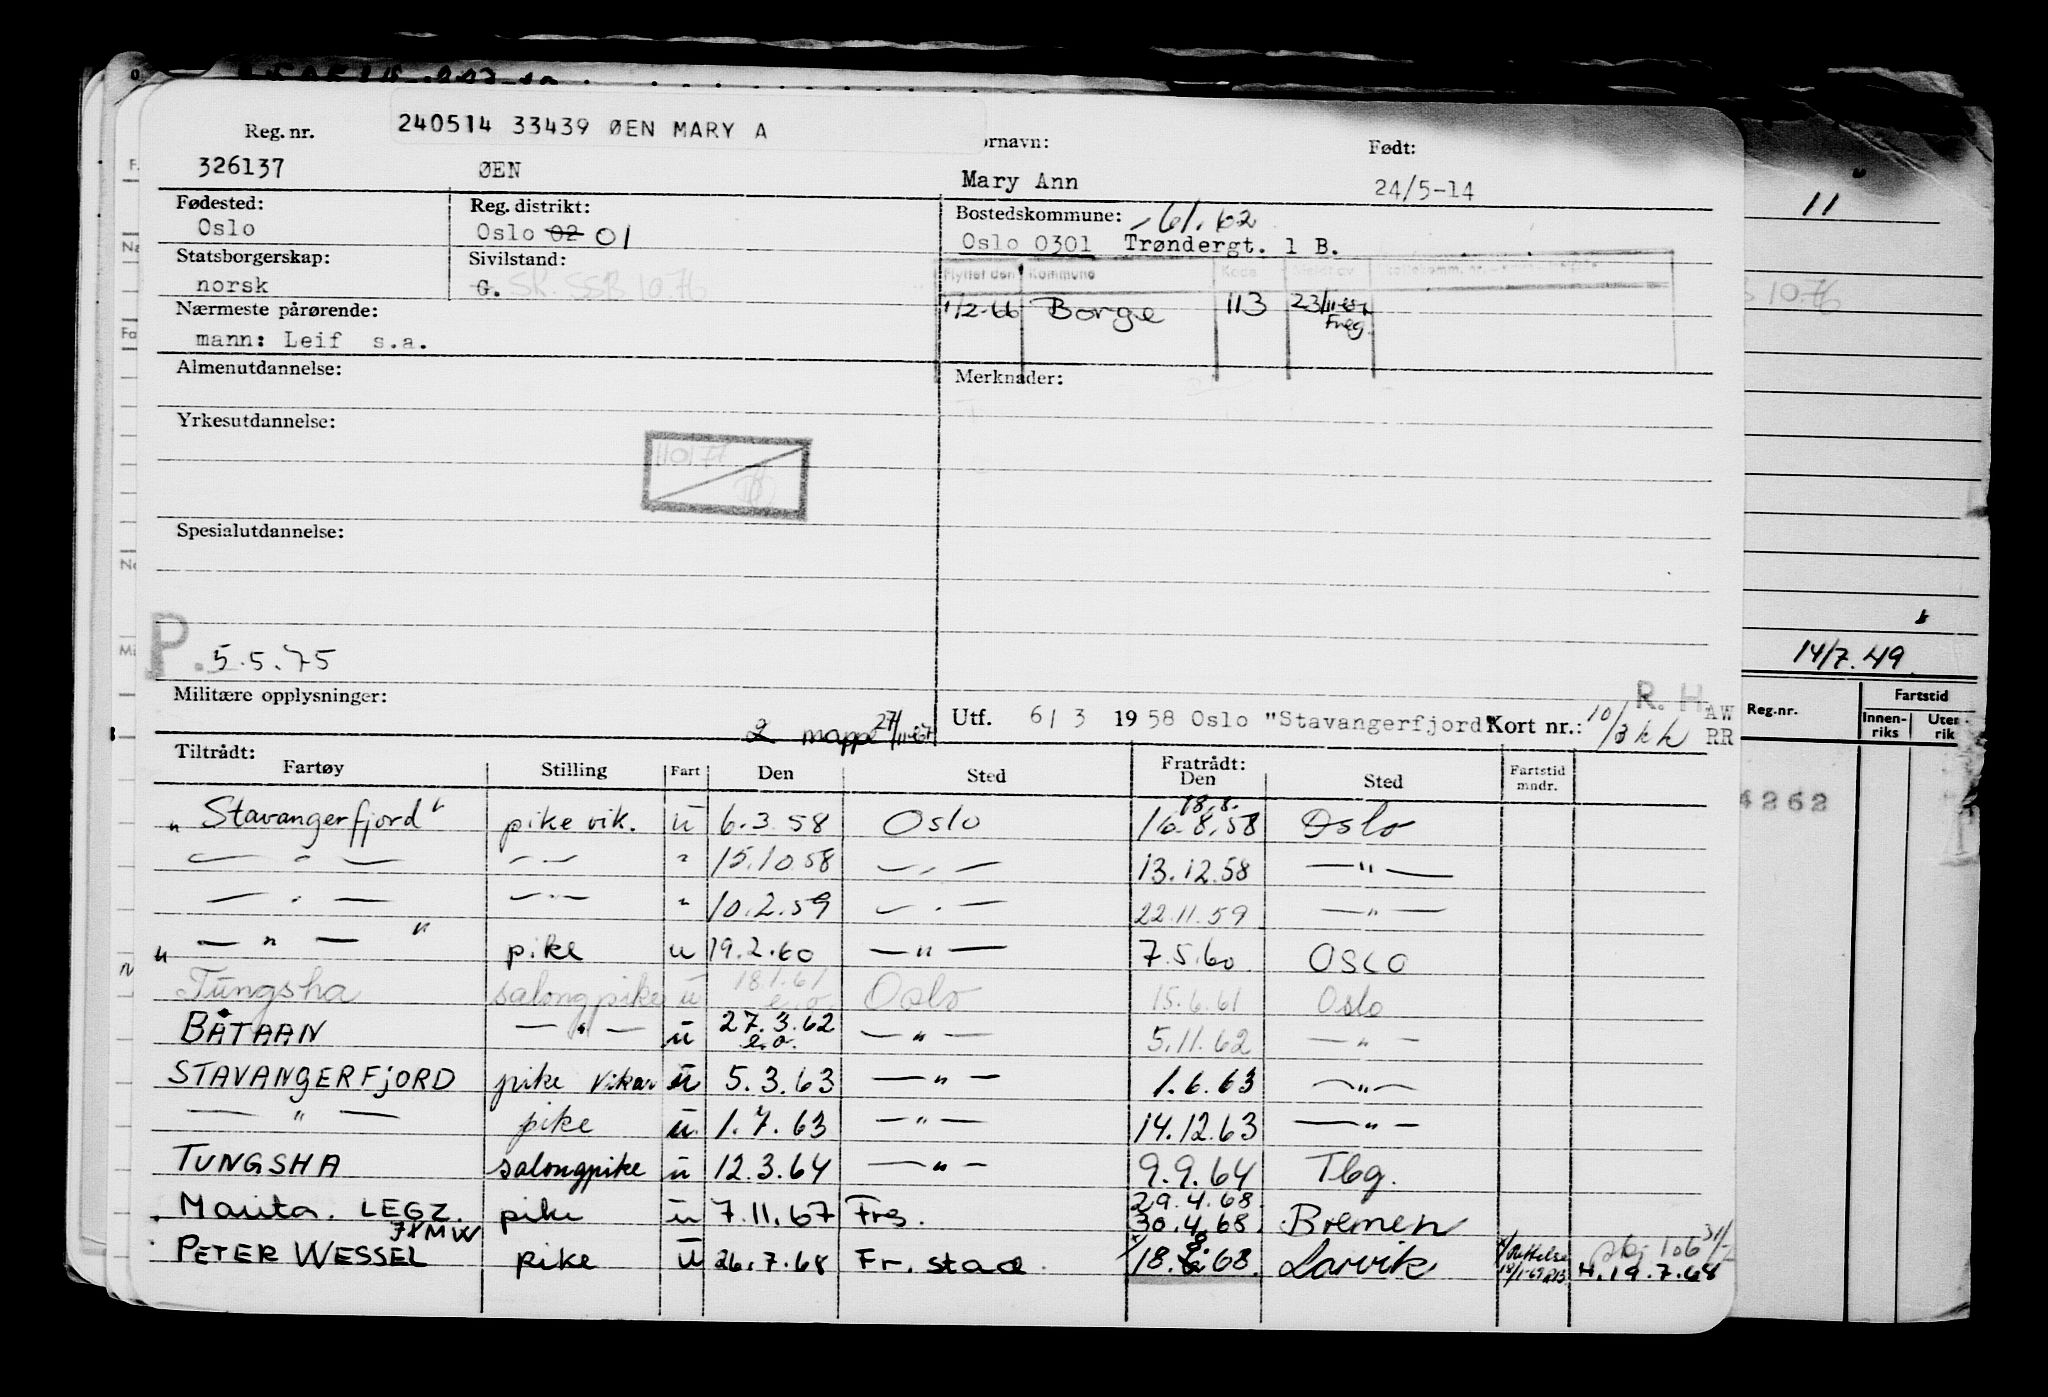 240514 33439 ØEN MARY A
Reg. nr. ornavn: Født:
326137 ØEN Mary Ann 24/5-14
Fødested: Reg. distrikt: Bostedskommune: -61.62
Oslo Oslo 02 01 Oslo 0301 Trøndergt. 1 B.
Statsborgerskap: Sivilstand: Flyttet den Kommune Kode Meldt av
norsk G. SK. SSB 10.76
Nærmeste pårørende: 1/2-66 Borge 113 23/11-67 Freg.
mann: Leif s.a.
Almenutdannelse: Merknader:
Yrkesutdannelse:
Spesialutdannelse:
P. 5.5.75
14/7.49
Militære opplysninger: R. H. AW
2 mappe 27/11-67 Utf. 6/ 3 1958 Oslo "Stavangerfjord" Kort nr.: 10/3 kk RR
Reg.nr. Fartstid
Innen-riks Uten-rik
Tiltrådt: Fratrådt:
Fartøy Stilling Fart Den Sted Den Sted Fartstid mndr.
18.8.
"Stavangerfjord" pike vik. u 6.3.58 Oslo 16.8.58 Oslo
— " — — " — " 15.10.58 — " — 13.12.58 — " —
— " — — " — " 10.2.59 — " — 22.11.59 — " —
" — " — " pike u 19.2.60 — " — 7.5.60 OSLO
Tungsha salongpike u 18.1.61 e.o. Oslo 15.6.61 Oslo
BATAAN — " — u 27.3.62 e.o. — " — 5.11.62 — " —
STAVANGERFJORD pike vikar u 5.3.63 — " — 1.6.63 — " —
— " — pike u 1.7.63 — " — 14.12.63 — " —
TUNGSHA salongpike u 12.3.64 — " — 9.9.64 Tbg.
29.4.68
Marita. LEGZ. pike u 7.11.67 Fres. 30.4.68 Bremen
7XMW
PETER WESSEL pike u 26.7.68 Fr. stad. x 18.8.68. Larvik x/Rettelse 10/1-69 H. 19.7.68
4262
11